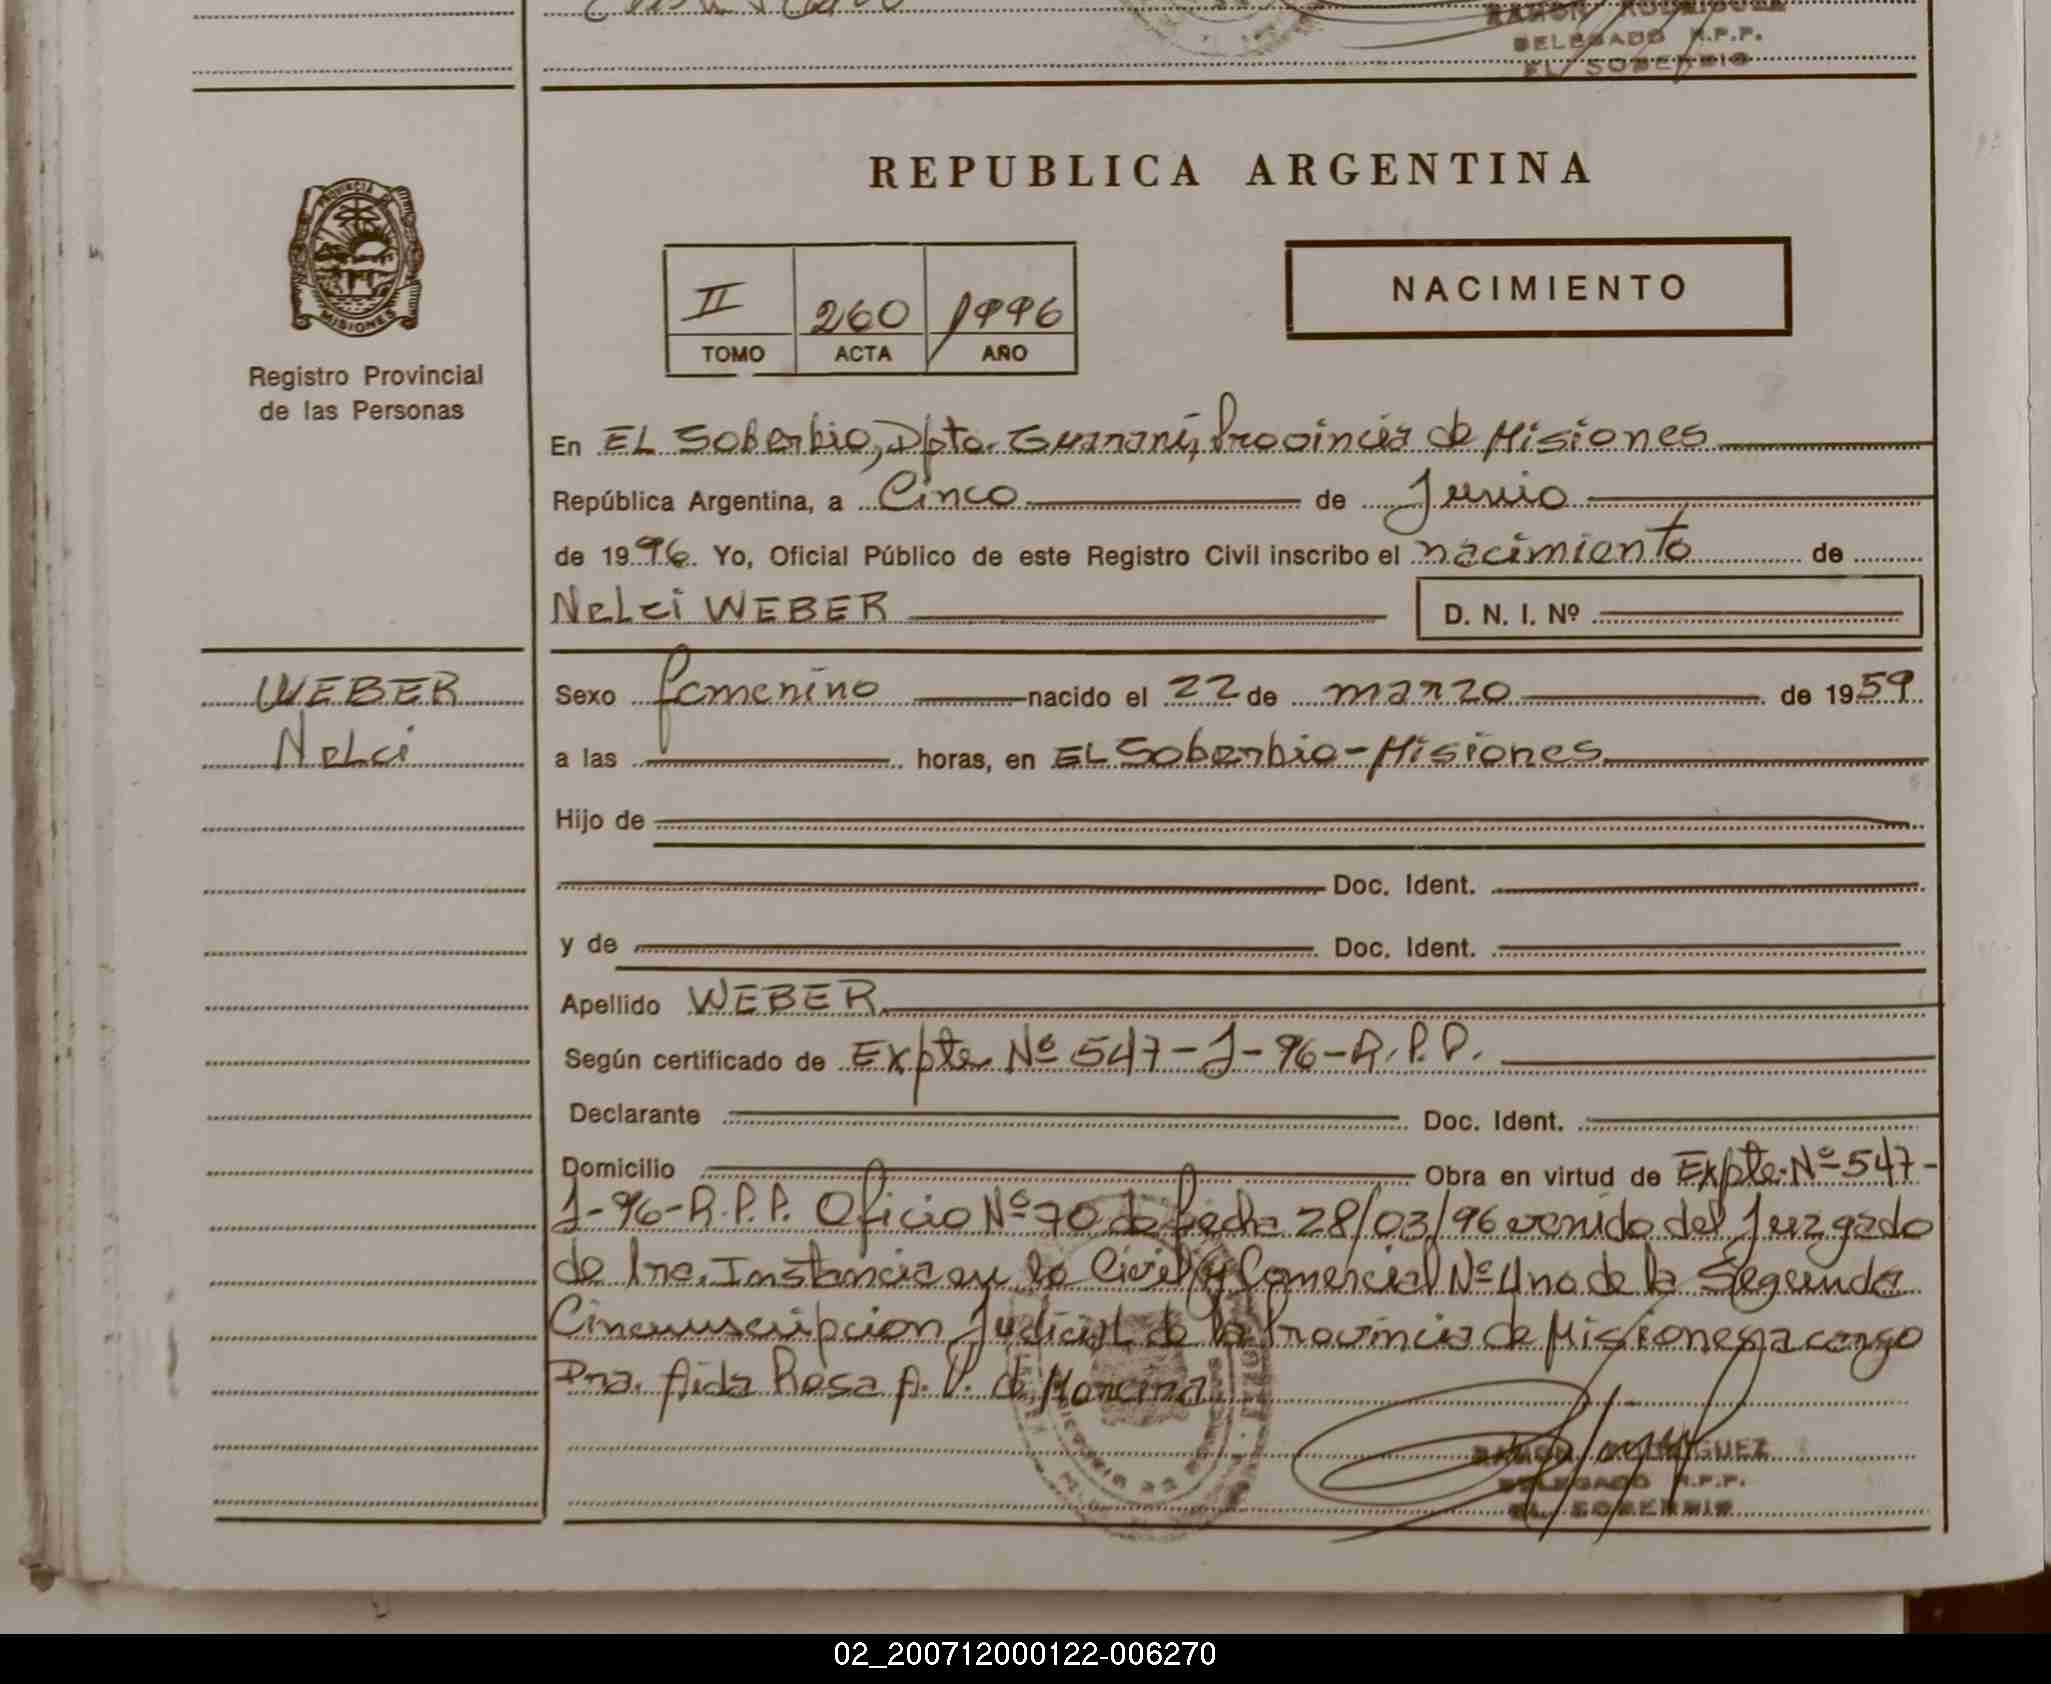 RAMON RODRIGUEZ
DELEGADO R.P.P.
EL SOBERBIO
REPUBLICA ARGENTINA
PROVINCIA DE
MISIONES
Registro Provincial
de las Personas
II 260 1996
TOMO ACTA AÑO
NACIMIENTO
En EL Soberbio, Dpto. Guaraní, Provincia de Misiones
República Argentina, a Cinco de Junio
de 1996. Yo, Oficial Público de este Registro Civil inscribo el nacimiento de
Nelci WEBER D. N. I. Nº
WEBER
Nelci
Sexo femenino nacido el 22 de marzo de 1959
a las horas, en EL Soberbio - Misiones
Hijo de
Doc. Ident.
y de Doc. Ident.
Apellido WEBER
Según certificado de Expte Nº 547-J-96-R.P.P.
Declarante Doc. Ident.
Domicilio Obra en virtud de Expte. Nº 547-
J-96-R.P.P. Oficio Nº 70 de fecha 28/03/96 venido del Juzgado
de 1ra. Instancia en lo Civil y Comercial Nº Uno de la Segunda
Circunscripcion Judicial de la Provincia de Misiones a cargo
Dra. Aida Rosa A. V. de
RAMON RODRIGUEZ
DELEGADO R.P.P.
EL SOBERBIO
02_200712000122-006270